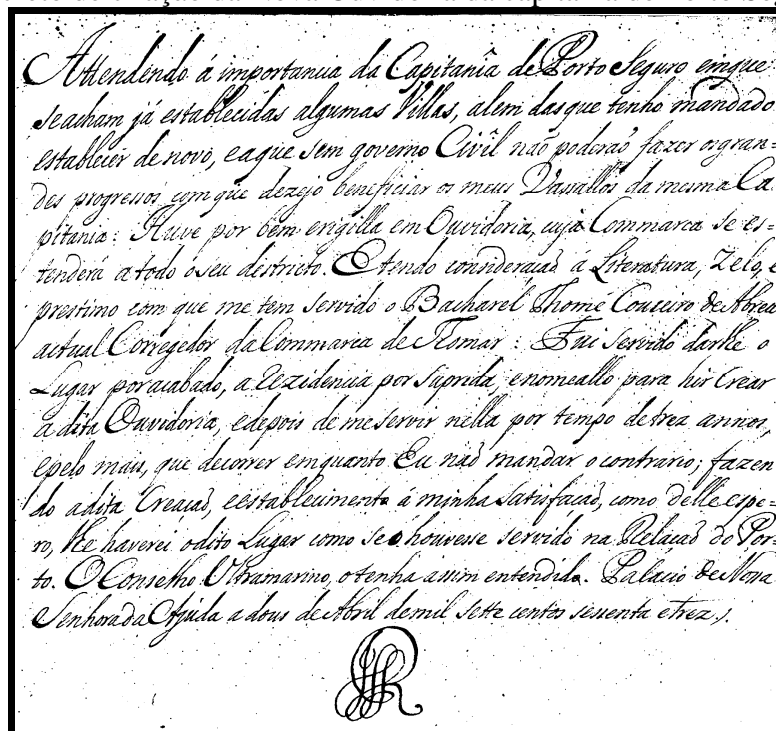 Attendendo á importancia da Capitania de Porto Seguro emque
seacham já establecidas algumas Villas, alem dasque tenho mandado
establecer denovo, eaque sem governo Civîl não poderaõ fazer osgran=
des progressos comque dezejo beneficiar os meus Vassallos damesma Ca
pitania: Huve por bem erigilla em Ouvidoria, cuja Commarca se es=
tenderá atodo oseu destricto. E tendo consideraçaõ á Literatura, Zelo, e
prestimo com que me tem servido o Bacharel Thomé Couceiro de Abreu
actual Corregedor da Commarca de Thomar: Fui servido darlhe o
Lugar poracabado, a Rezidencia por suprida, enomeallo para hir Crear
a dita Ouvidoria, edepois de meservir nella por tempo detrez annos,
epelo mais, que decorrer emquanto Eu naõ mandar ocontrario; fazen
do adita Creaçaõ, eestablecimento á minha satisfaçaõ, como delle espe=
ro, lhe haverei odito Lugar como seo houvesse servido na Relaçaõ do Por=
to. O Conselho Ultramarino, otenha assim entendido. Palacio de Nossa
Senhora da Ajuda adous de Abril demil sette centos sessenta etrez.